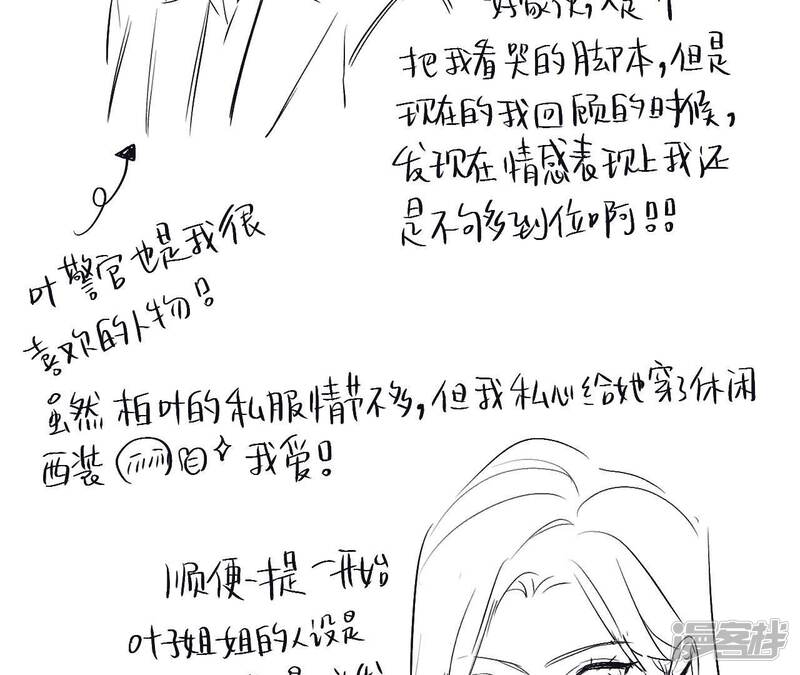 把我看哭的脚本,但是
现在的我回顾的时候,
发现在情感表现上我还
是不够多到位啊!!
叶警官也是我很
喜欢的人物!
虽然柏叶的私服情节不多,但我私心给她穿了休闲
西装 我爱!
顺便一提一开始
叶子姐姐的人设是
漫客栈